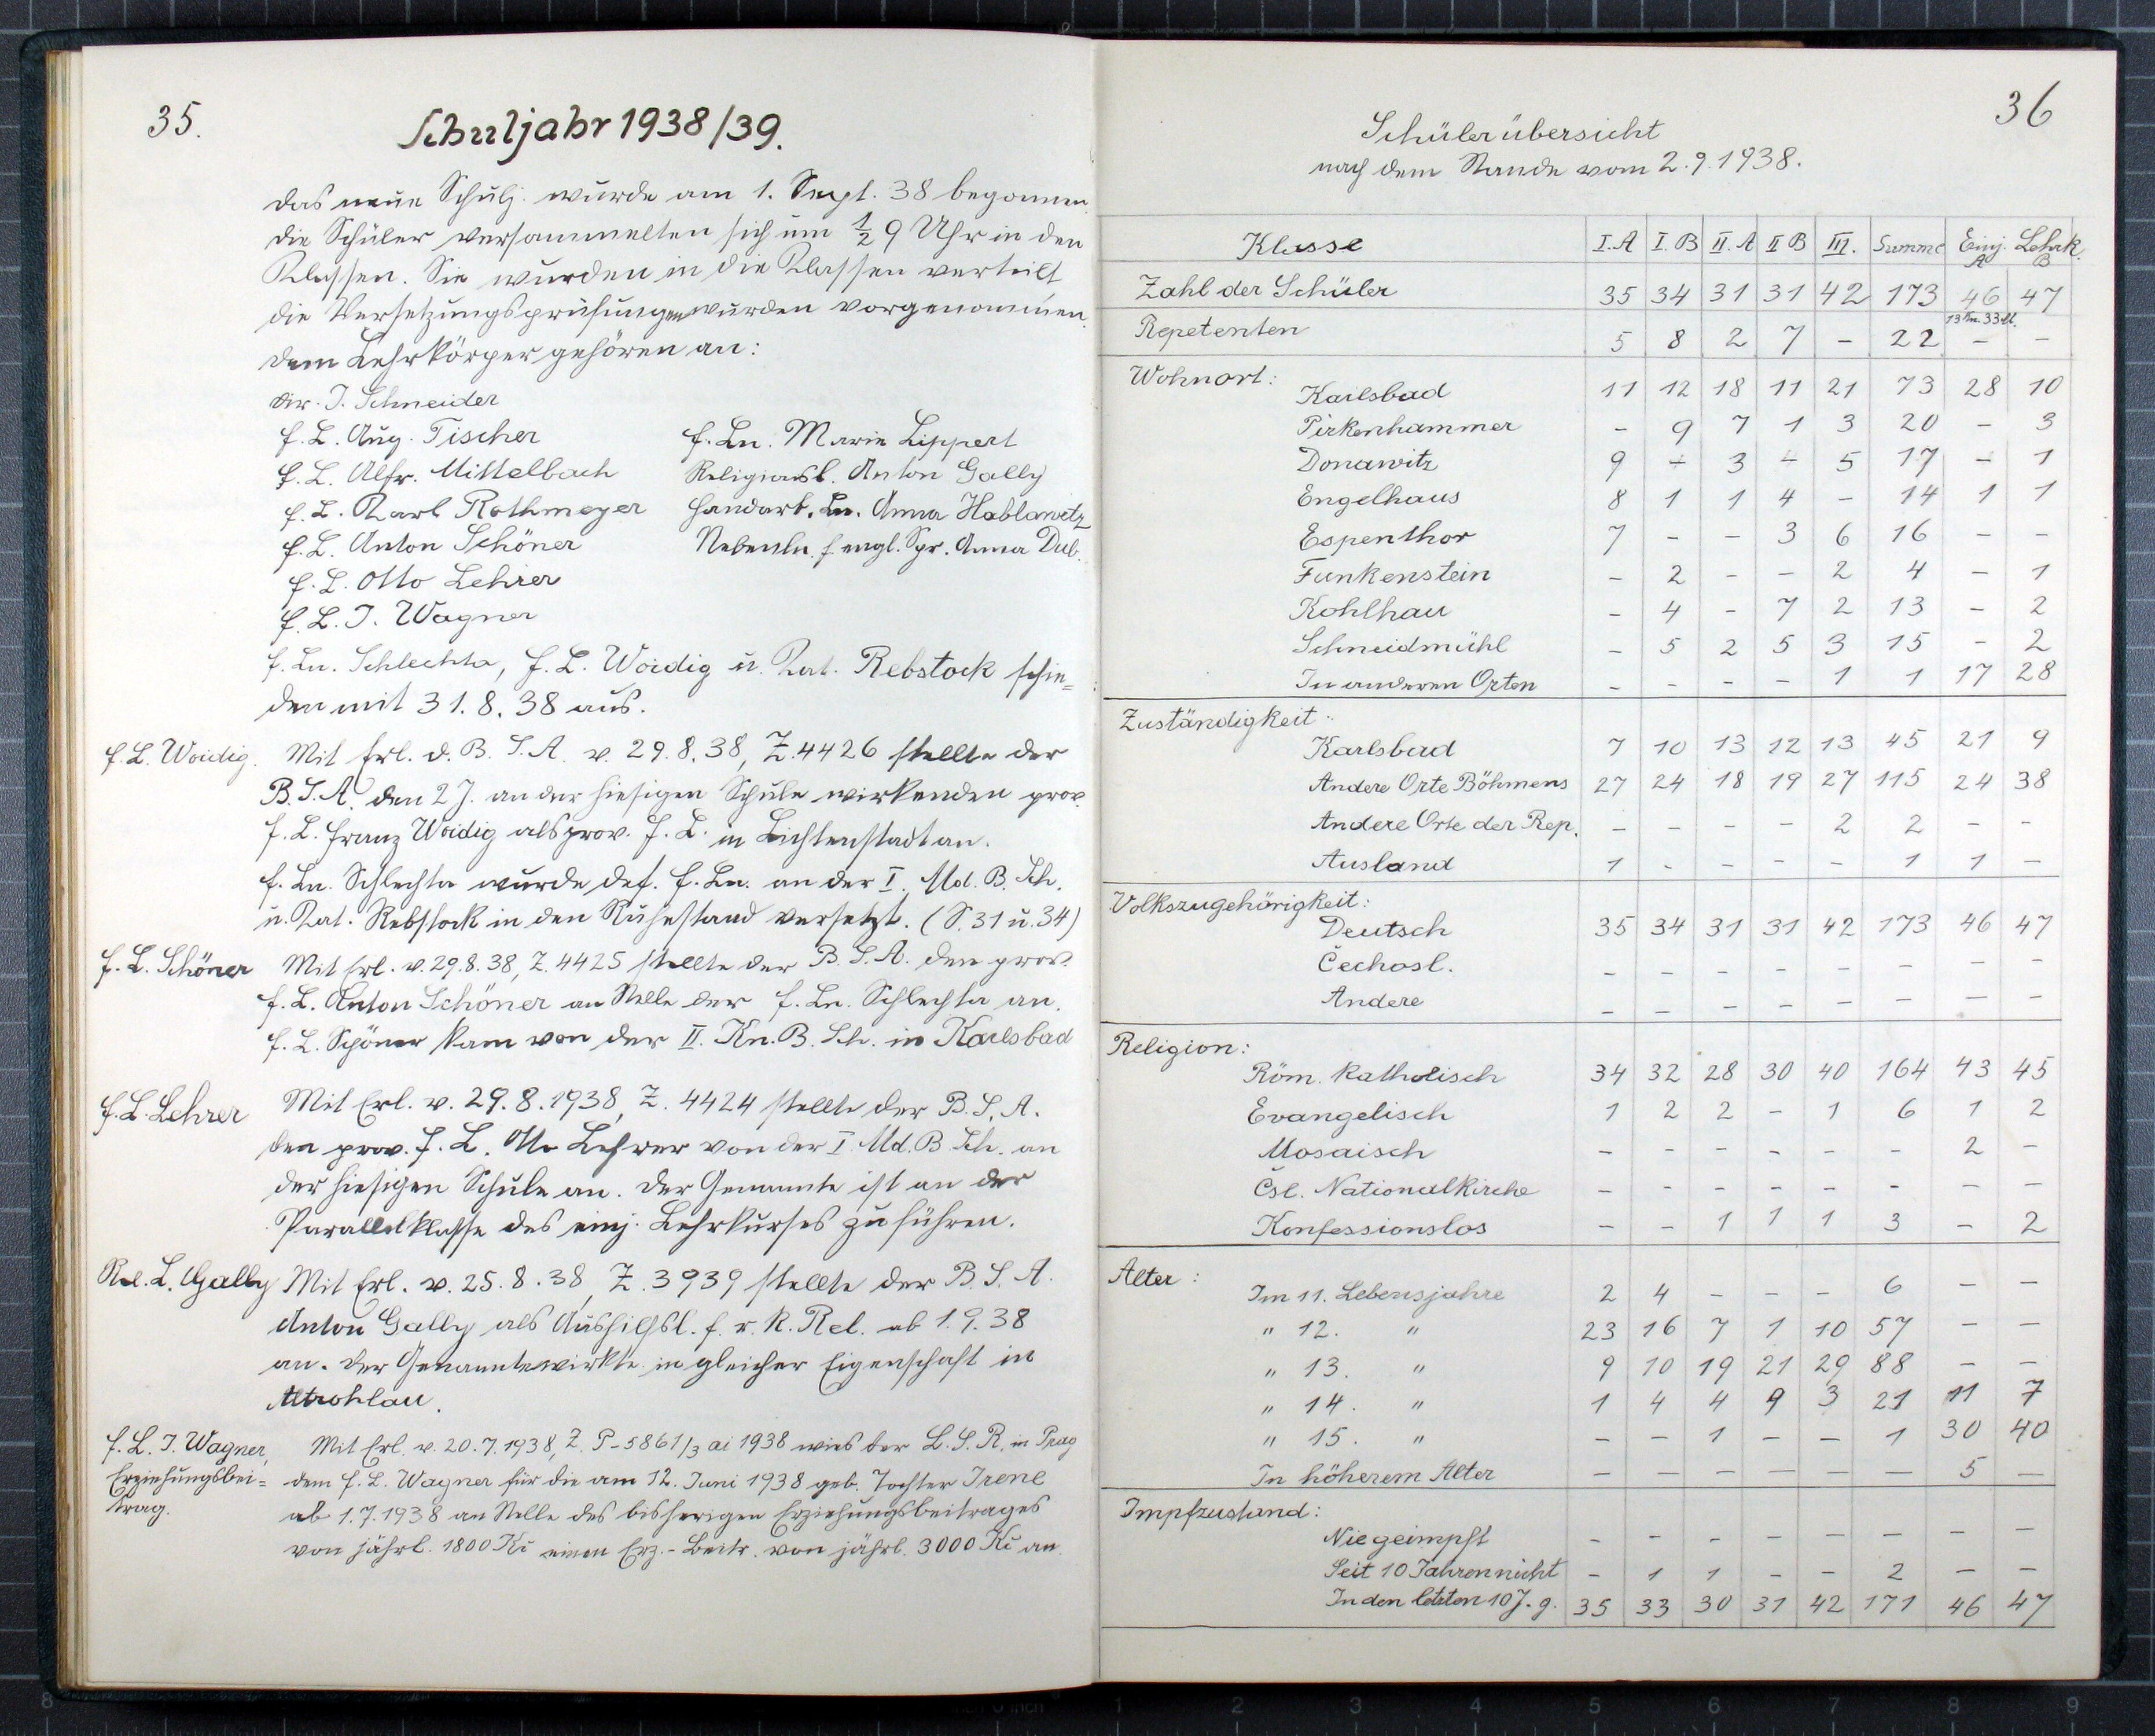 35.
Schuljahr 1938/39.
Das neue Schulj. wurde am 1. Sept. 38 begonnen.
Die Schüler versammelten sich um ½ 9 Uhr in den
Klassen. Sie wurden in die Klassen verteilt
die Versetzungsprüfungen wurden vorgenommen.
Dem Lehrkörper gehören an:
Dir. J. Schneider
f. L. Aug. Tischer f. Ln. Marie Lippert
f. L. Alfr. Mittelbach Religionsl. Anton Gally
f. L. Karl Rothmeyer Handarb. Ln. Anna Hablawetz
f. L. Anton Schöner Nebenln. f. engl. Spr. Anna Dub.
f. L. Otto Lehrer
f. L. J. Wagner
f. Ln. Schlechta, f. L. Woidig u. Kat. Rebstock schie=
den mit 31. 8. 38 aus.
f. L. Woidig. Mit Erl. d. B. S. A. v. 29. 8. 38, Z. 4426 stellte der
B. S. A. den 2 J. an der hiesigen Schule wirkenden prov.
f. L. Franz Woidig als prov. f. L. in Lichtenstadt an.
f. Ln. Schlechta wurde def. f. Ln. an der I. Md. B. Sch.
u. Kat. Rebstock in den Ruhestand versetzt. (S. 31 u. 34)
f. L. Schöner Mit Erl. v. 29. 8. 38, Z. 4425 stellte der B. S. A. den prov.
f. L. Anton Schöner an Stelle der f. Ln. Schlechta an.
f. L. Schöner kam von der II. Kn. B. Sch. in Karlsbad
f. L. Lehrer Mit Erl. v. 29. 8. 1938, Z. 4424 stellte der B. S. A.
den prov. f. L. Otto Lehrer von der I Md. B Sch. an
der hiesigen Schule an. Der Genannte ist an der
Parallelklasse des einj. Lehrkurses zu führen.
Rel. L. Gally Mit Erl. v. 25. 8. 38, Z. 3939 stellte der B. S. A.
Anton Gally als Aushilfsl. f. r. k. Rel. ab 1. 9. 38
an. Der Genannte wirkte in gleicher Eigenschaft in
Altrohlau.
f. L. J. Wagner, Mit Erl. v. 20. 7. 1938, Z. P-5861/3 ai 1938 wies der L. S. R. in Prag
Erziehungsbei= dem f. L. Wagner für die am 12. Juni 1938 geb. Tochter Irene
trag. ab 1. 7. 1938 an Stelle des bisherigen Erziehungsbeitrages
von jährl. 1800 Kč einen Erz.-Beitr. von jährl. 3000 Kč an.
36
Schülerübersicht
nach dem Stande vom 2. 9. 1938.
Klasse I. A I. B II. A II B III. Summe Einj. Lehrk.
A B
Zahl der Schüler 35 34 31 31 42 173 46 47
13 Kn. 33 M.
Repetenten 5 8 2 7 - 22 - -
Wohnort:
Karlsbad 11 12 18 11 21 73 28 10
Pirkenhammer - 9 7 1 3 20 - 3
Donawitz 9 - 3 - 5 17 - 1
Engelhaus 8 1 1 4 - 14 1 1
Espenthor 7 - - 3 6 16 - -
Funkenstein - 2 - - 2 4 - 1
Kohlhau - 4 - 7 2 13 - 2
Schneidmühl - 5 2 5 3 15 - 2
In anderen Orten - - - - 1 1 17 28
Zuständigkeit:
Karlsbad 7 10 13 12 13 45 21 9
Andere Orte Böhmens 27 24 18 19 27 115 24 38
Andere Orte der Rep. - - - - 2 2 - -
Ausland 1 - - - - 1 1 -
Volkszugehörigkeit:
Deutsch 35 34 31 31 42 173 46 47
Čechosl. - - - - - - - -
Andere - - - - - - - -
Religion:
Röm. katholisch 34 32 28 30 40 164 43 45
Evangelisch 1 2 2 - 1 6 1 2
Mosaisch - - - - - - 2 -
Čsl. Nationalkirche - - - - - - - -
Konfessionslos - - 1 1 1 3 - 2
Alter:
Im 11. Lebensjahre 2 4 - - - 6 - -
" 12. " 23 16 7 1 10 57 - -
" 13. " 9 10 19 21 29 88 - -
" 14. " 1 4 4 9 3 21 11 7
" 15. " - - 1 - - 1 30 40
In höherem Alter - - - - - - 5 -
Impfzustand:
Nie geimpft - - - - - - - -
Seit 10 Jahren nicht - 1 1 - - 2 - -
In den letzten 10 J. g. 35 33 30 31 42 171 46 47
8 0 inch 1 2 3 4 5 6 7 8 9